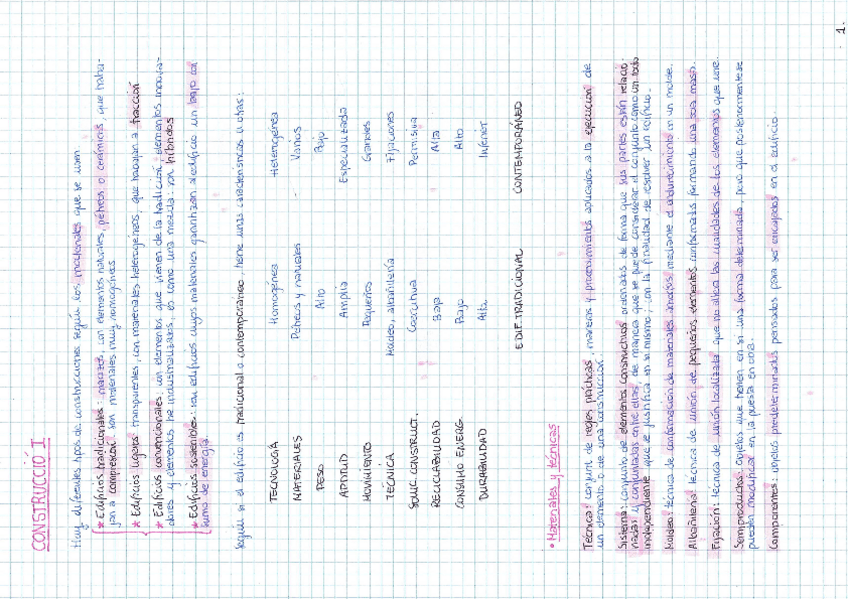 1.
CONSTRUCCIÓ I
Hay diferentes tipos de construcciones según los materiales que se usen.
★ Edificios tradicionales: macizos, con elementos naturales, pétreos o cerámicos, que traba-
jan a compresión. Son materiales muy homogéneos
★ Edificios ligeros: transparentes, con materiales heterogéneos, que trabajan a tracción
★ Edificios convencionales: con elementos que vienen de la tradición, elementos innova-
dores y elementos industrializados, es como una mezcla: son híbridos
★ Edificios sostenibles: son edificios cuyos materiales garantizan al edificio un bajo con
sumo de energía.
Según si el edificio es tradicional o contemporáneo, tiene unas características u otras:
TECNOLOGÍA Homogénea Heterogénea
MATERIALES Pétreos y naturales - Varios
PESO Alto Bajo
APTITUD Amplia Especializada
MOVIMIENTO Pequeños Grandes
TÉCNICA Moldeo, albañilería Fijaciones
SOLIC. CONSTRUCT. Coercitiva Permisiva
RECICLABILIDAD Baja Alta
CONSUMO ENERG. Bajo Alto
DURABILIDAD Alta. Inferior
EDIF. TRADICIONAL CONTEMPORÁNEO
• Materiales y técnicas
Técnica: conjunt de reglas prácticas, maneras y procedimientos aplicados a la ejecución de
un elemento o de una construcción.
Sistema: conjunto de elementos constructivos ordenados de forma que sus partes están relacio
nadas y conjuntadas entre ellas, de manera que se puede considerar el conjunto como un todo
independiente que se justifica en si mismo; con la finalidad de resolver un edificio.
Moldeo: técnica de conformación de materiales amorfos mediante el endurecimiento en un molde.
Albañilería: técnica de unión de pequeños elementos conformados formando una sola masa.
Fijación: técnica de unión localizada que no altera las cualidades de los elementos que une.
Semiproductos: objetos que tienen en sí una forma determinada, pero que posteriormente se
pueden modificar en la puesta en obra.
Componentes: objetos predeterminados pensados para ser encajados en el edificio.